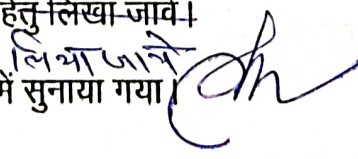 हेतु लिखा जावे।
लिया जावे
में सुनाया गया।